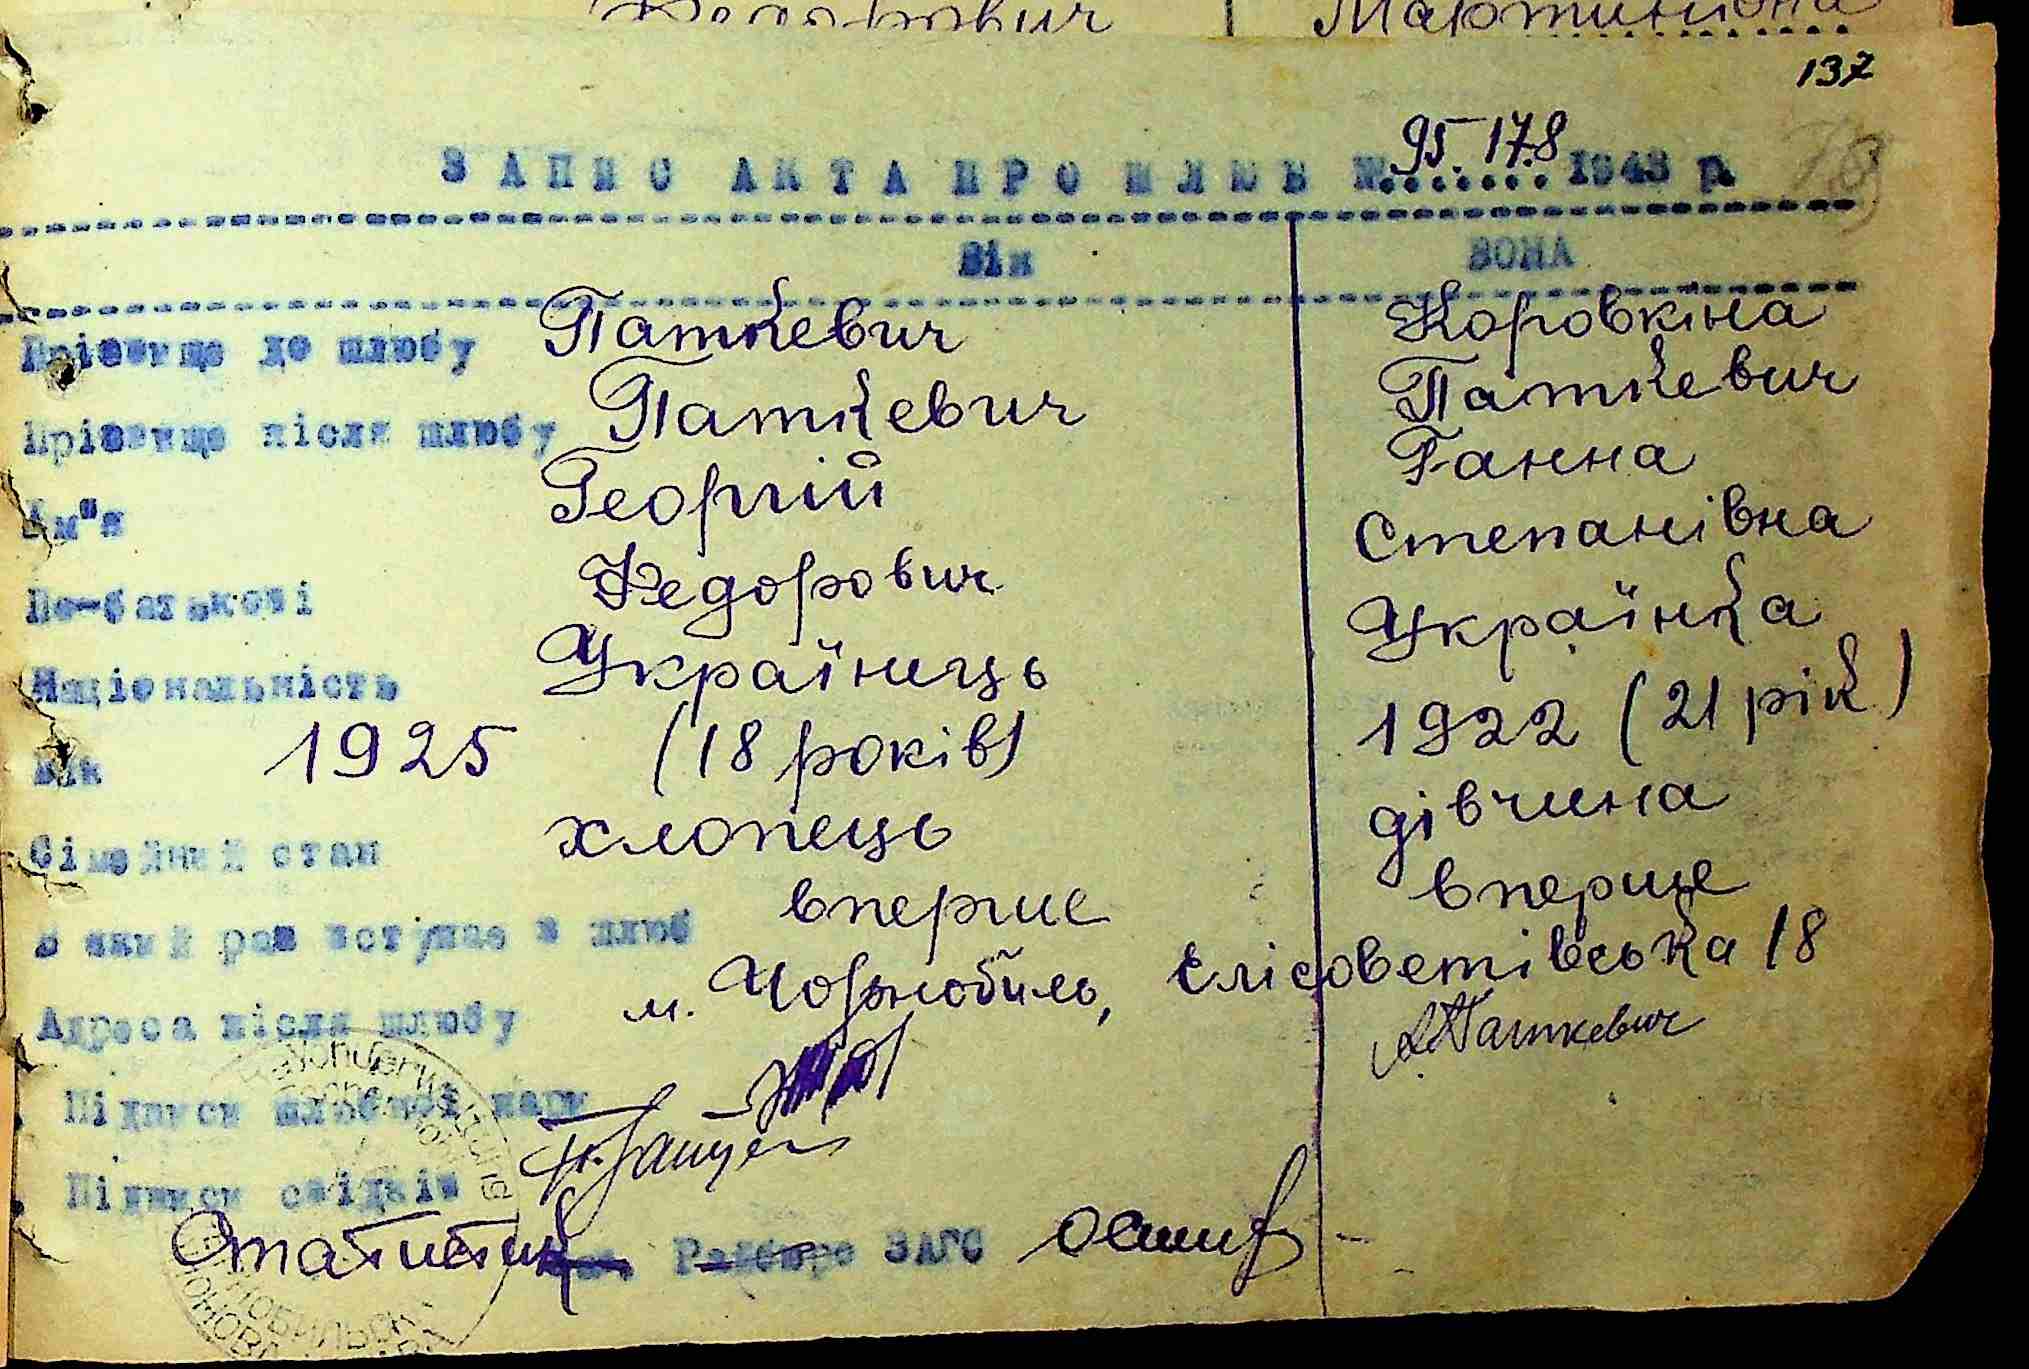 Мартинівна
137
ЗАПИС АКТА ПРО ШЛЮБ № 95. 17.8 1943 р.
Він ВОНА
Прізвище до шлюбу Паткевич Коровкіна
Прізвище після шлюбу Паткевич Паткевич
Ім"я Георгій Ганна
По-батькові Федорович Степанівна
Національність Українець Українка
Вік 1925 (18 років) 1922 (21 рік)
Сімейний стан хлопець дівчина
В який раз вступає в шлюб вперше вперше
Адреса після шлюбу м. Чорнобиль, Єлісоветівська 18
Підписи шлюбної пари А Паткевич
Підписи свідків
Статистик Райбюро ЗАГС